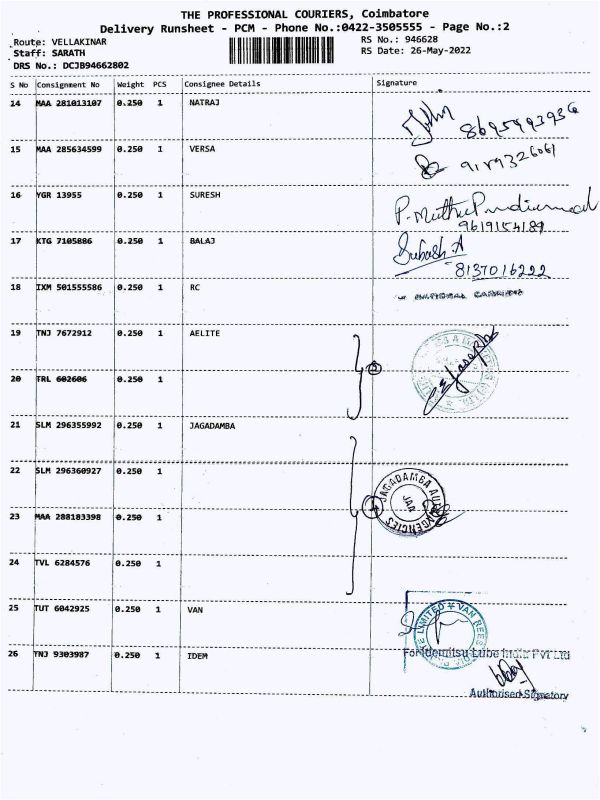 THE PROFESSIONAL COURIERS, Coimbatore
Delivery Runsheet - PCM - Phone No.:0422-3505555 - Page No.:2
Route: VELLAKINAR RS No.: 946628
Staff: SARATH RS Date: 26-May-2022
DRS No.: DCJB94662802
S No Consignment No Weight PCS Consignee Details Signature
14 MAA 281013107 0.250 1 NATRAJ
15 MAA 285634599 0.250 1 VERSA
16 YGR 13955 0.250 1 SURESH
9619154189
17 KTG 7105886 0.250 1 BALAJ Subash A
8137016222
18 IXM 501555586 0.250 1 RC
19 TNJ 7672912 0.250 1 AELITE
20 TRL 602606 0.250 1
21 SLM 296355992 0.250 1 JAGADAMBA
22 SLM 296360927 0.250 1
JAGADAMBA
23 MAA 288183398 0.250 1
24 TVL 6284576 0.250 1
25 TUT 6042925 0.250 1 VAN
LIMITED VAN REES
26 TNJ 9303987 0.250 1 IDEM For Idemitsu Lube India Pvt Ltd
Authorised Signatory